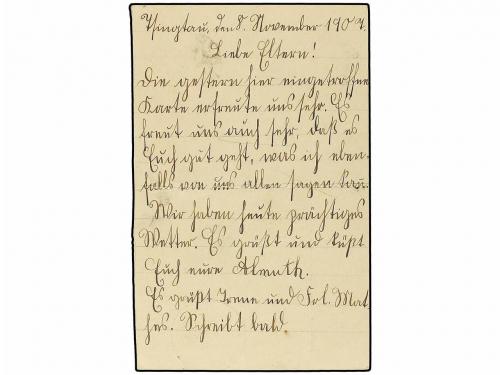 Tsingtau, den 8. November 1904.
Liebe Eltern!
Die gestern hier eingetroffne
Karte erfreute uns sehr. Es
freut uns auch sehr, daß es
Euch gut geht, was ich eben-
falls von uns allen sagen kann.
Wir haben heute prächtiges
Wetter. Es grüßt und küßt
Euch eure
Es grüßt Irene und Frl. Mat-
hes. Schreibt bald.